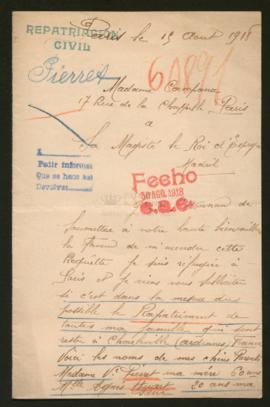 Paris le 15 Aout 1918
REPATRIACIÓN
CIVIL
Pierret
60891
Madame Campana
17 Rue de la Chappelle Paris
a
Sa Magesté le Roi d'Espagne
Madrid
Pedir informes
Que se hace así
Devolver
Fecho
30 AGO. 1918
de
Soumettre à votre haute bienveillance
la faveur de m'accorder cette
Requête je suis réfugiée à
Paris et je viens vous solliciter
si c'est dans la mesure du
possible le Rapatriement de
toutes ma famille qui sont
resté a Charleville (ardennes) France
Voici les noms de mes chers Parents
Madame Vve Pierret ma mère 60 ans
Mlle Agnès 20 ans ma